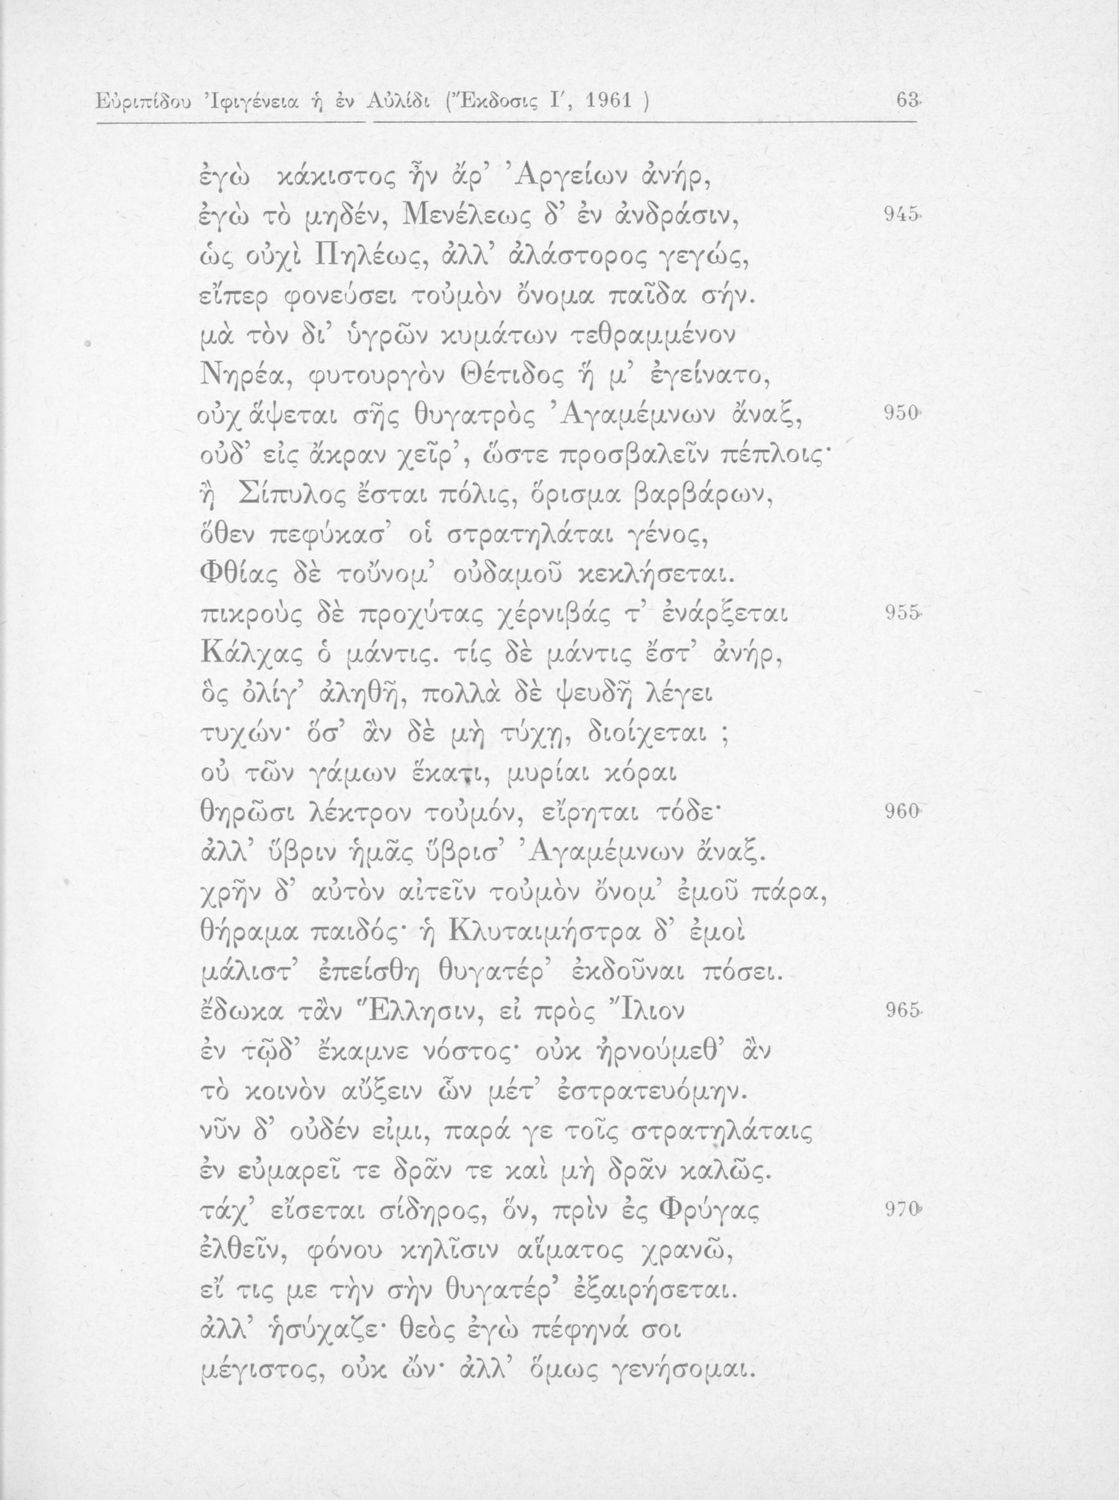 Εὐριπίδου Ἰφιγένεια ἡ ἐν Αὐλίδι (Ἔκδοσις Ι΄, 1961 ) 63
ἐγὼ κάκιστος ἦν ἄρ’ Ἀργείων ἀνήρ,
ἐγὼ τὸ μηδέν, Μενέλεως δ’ ἐν ἀνδράσιν, 945
ὡς οὐχὶ Πηλέως, ἀλλ’ ἀλάστορος γεγώς,
εἴπερ φονεύσει τοὐμὸν ὄνομα παῖδα σήν.
μὰ τὸν δι’ ὑγρῶν κυμάτων τεθραμμένον
Νηρέα, φυτουργὸν Θέτιδος ἥ μ’ ἐγείνατο,
οὐχ ἅψεται σῆς θυγατρὸς Ἀγαμέμνων ἄναξ, 950
οὐδ’ εἰς ἄκραν χεῖρ’, ὥστε προσβαλεῖν πέπλοις·
ἢ Σίπυλος ἔσται πόλις, ὅρισμα βαρβάρων,
ὅθεν πεφύκασ’ οἱ στρατηλάται γένος,
Φθίας δὲ τοὔνομ’ οὐδαμοῦ κεκλήσεται.
πικροὺς δὲ προχύτας χέρνιβάς τ’ ἐνάρξεται 955
Κάλχας ὁ μάντις. τίς δὲ μάντις ἔστ’ ἀνήρ,
ὃς ὀλίγ’ ἀληθῆ, πολλὰ δὲ ψευδῆ λέγει
τυχών· ὅσ’ ἂν δὲ μὴ τύχῃ, διοίχεται ;
οὐ τῶν γάμων ἕκατι, μυρίαι κόραι
θηρῶσι λέκτρον τοὐμόν, εἴρηται τόδε· 960
ἀλλ’ ὕβριν ἡμᾶς ὕβρισ’ Ἀγαμέμνων ἄναξ.
χρῆν δ’ αὐτὸν αἰτεῖν τοὐμὸν ὄνομ’ ἐμοῦ πάρα,
θήραμα παιδός· ἡ Κλυταιμήστρα δ’ ἐμοὶ
μάλιστ’ ἐπείσθη θυγατέρ’ ἐκδοῦναι πόσει.
ἔδωκα τἂν Ἕλλησιν, εἰ πρὸς Ἴλιον 965
ἐν τῷδ’ ἔκαμνε νόστος· οὐκ ἠρνούμεθ’ ἂν
τὸ κοινὸν αὔξειν ὧν μέτ’ ἐστρατευόμην.
νῦν δ’ οὐδέν εἰμι, παρά γε τοῖς στρατηλάταις
ἐν εὐμαρεῖ τε δρᾶν τε καὶ μὴ δρᾶν καλῶς.
τάχ’ εἴσεται σίδηρος, ὅν, πρὶν ἐς Φρύγας 970
ἐλθεῖν, φόνου κηλῖσιν αἵματος χρανῶ,
εἴ τις με τὴν σὴν θυγατέρ’ ἐξαιρήσεται.
ἀλλ’ ἡσύχαζε· θεὸς ἐγὼ πέφηνά σοι
μέγιστος, οὐκ ὤν· ἀλλ’ ὅμως γενήσομαι.